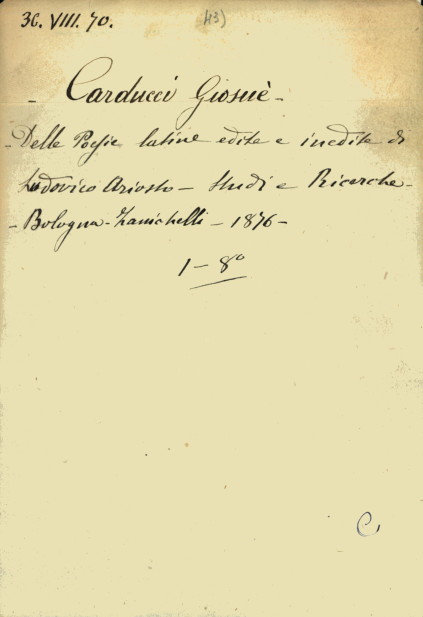 36. VIII. 70.
43)
- Carducci Giosuè -
- Delle Poesie latine edite e inedite di
Ludovico Ariosto - Studi e Ricerche -
- Bologna - Zanichelli - 1876 -
1 - 8º
C,